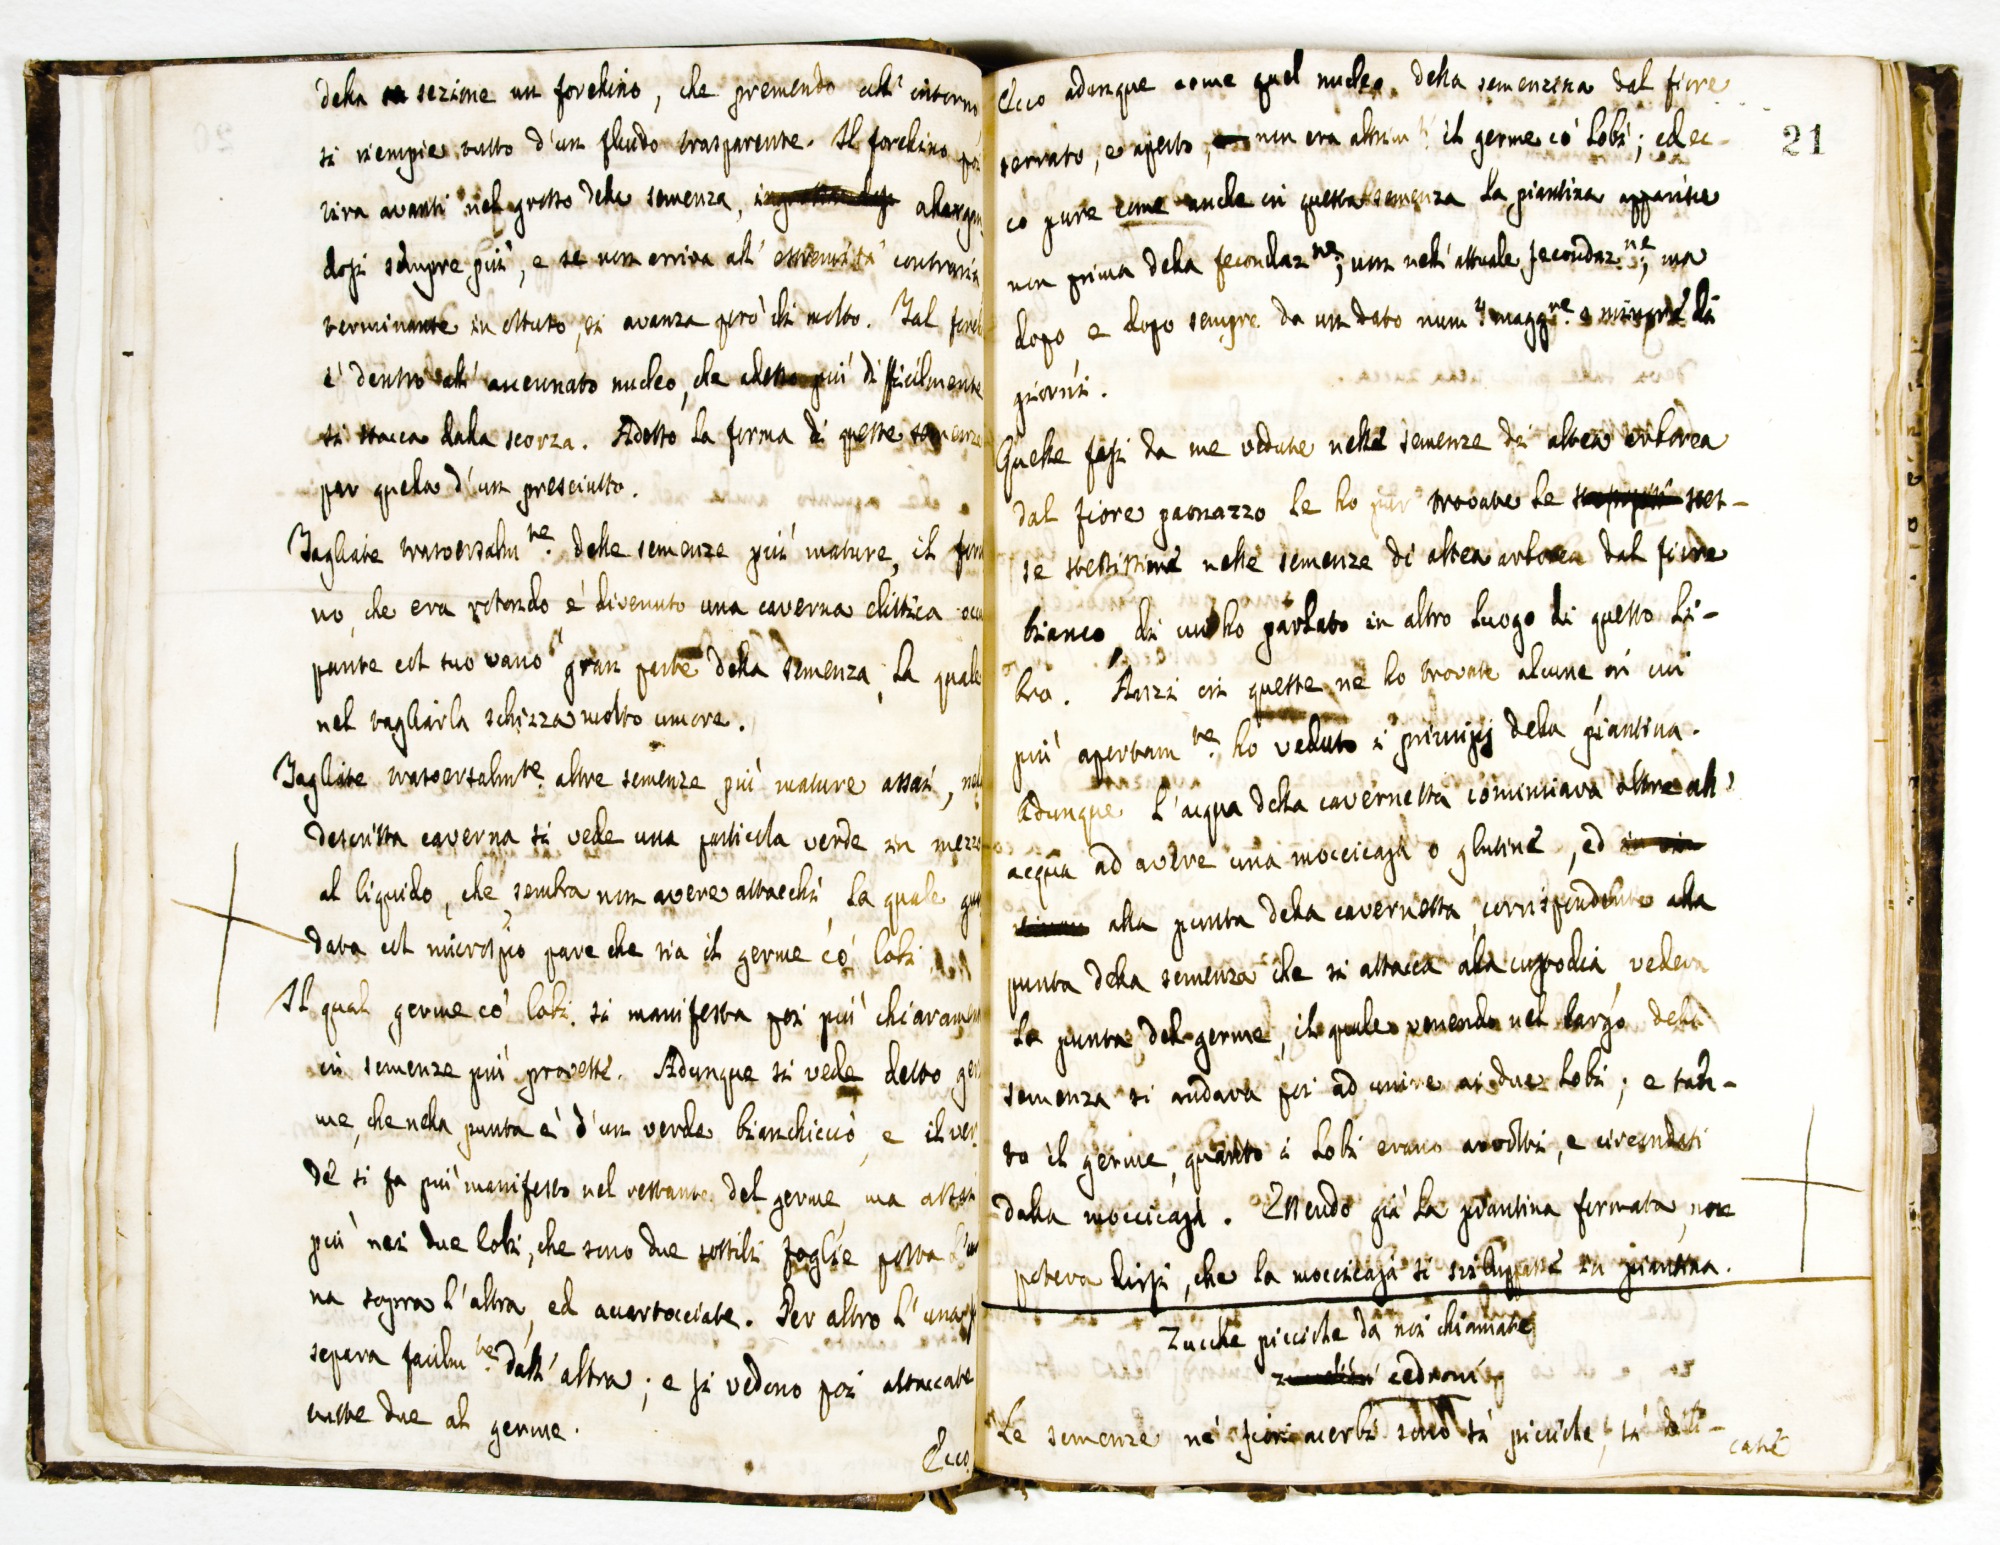 della sezione un forellino, che premendo all' intorno
si riempie tutto d'un fluido trasparente. Il forellino poi
tira avanti nel grosso della semenza, allargan
dosi sempre più, e se non arriva all' estremità contraria
terminante in ottuso, si avanza però di molto. Tal forel
è dentro all' accennato nucleo, che adesso più difficilmente
si stacca dalla scorza. Adesso la forma di queste semenze
par quella d'un presciutto.
Tagliate trasversalm.te delle semenze più mature, il fore
no, che era rotondo è divenuto una caverna elittica occu
pante col suo vano gran parte della semenza, la quale
nel tagliarla schizza molto umore.
Tagliate trasversalmte altre semenze più mature assai, nella
descritta caverna si vede una particola verde in mezzo
al liquido, che sembra non avere attacchi, la quale guar
data col microspio pare che sia il germe co' lobi.
Il qual germe co' lobi si manifesta poi più chiaramen
in semenze più provette. Adunque si vede detto ger
me, che nella punta è d'un verde bianchiccio, e il ver
de si fa più manifesto nel restante del germe, ma assai
più nei due lobi, che sono due sottili foglie posta l'u
na sopra l'altra, ed accartocciate. Per altro l'una si
separa facilm.te dall' altra; e si vedono poi attaccate
tutte due al germe.
Ecco
21
Ecco adunque come quel nucleo della semenzina dal fiore
serrato, e aperto, non era altrim.ti il germe co' lobi; ed ec-
co pure come anche in questa semenza la piantina apparisce
non prima della fecondaz.ne; non nell' attuale fecondaz.ne; ma
dopo, e dopo sempre da un dato num.o maggre. o minore di
giorni.
Quelle fasi da me vedute nelle semenze di altea arborea
dal fiore paonazzo le ho pur trovate le stes-
se stessissime nelle semenze di altea arborea dal fiore
bianco, di cui ho parlato in altro luogo di questo li-
bro. Anzi in queste ne ho trovate alcune in cui
più apertam.te ho veduto i principj della piantina.
Adunque l'acqua della cavernetta cominciava oltre all'
acqua ad avere una moccicaja o glutine, ed
alla punta della cavernetta corrispondente alla
punta della semenza che si attacca alla custodia, vedeva
la punta del germe, il quale venendo nel largo della
semenza si andava poi ad unire ai due lobi; e tan-
to il germe, quanto i lobi erano avvolti, e circondati
dalla moccicaja. Essendo già la piantina formata, non
poteva dirsi, che la moccicaja si sviluppasse in piantina.
Zucche picciole da noi chiamate
cedroni
Le semenze ne' fiori acerbi sono sì picciole, sì deli-
cate